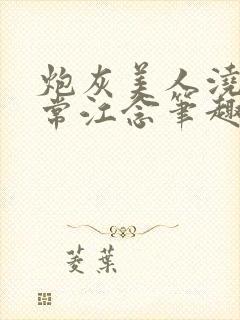 炮灰美人浇
常江念笔趣
菱葉